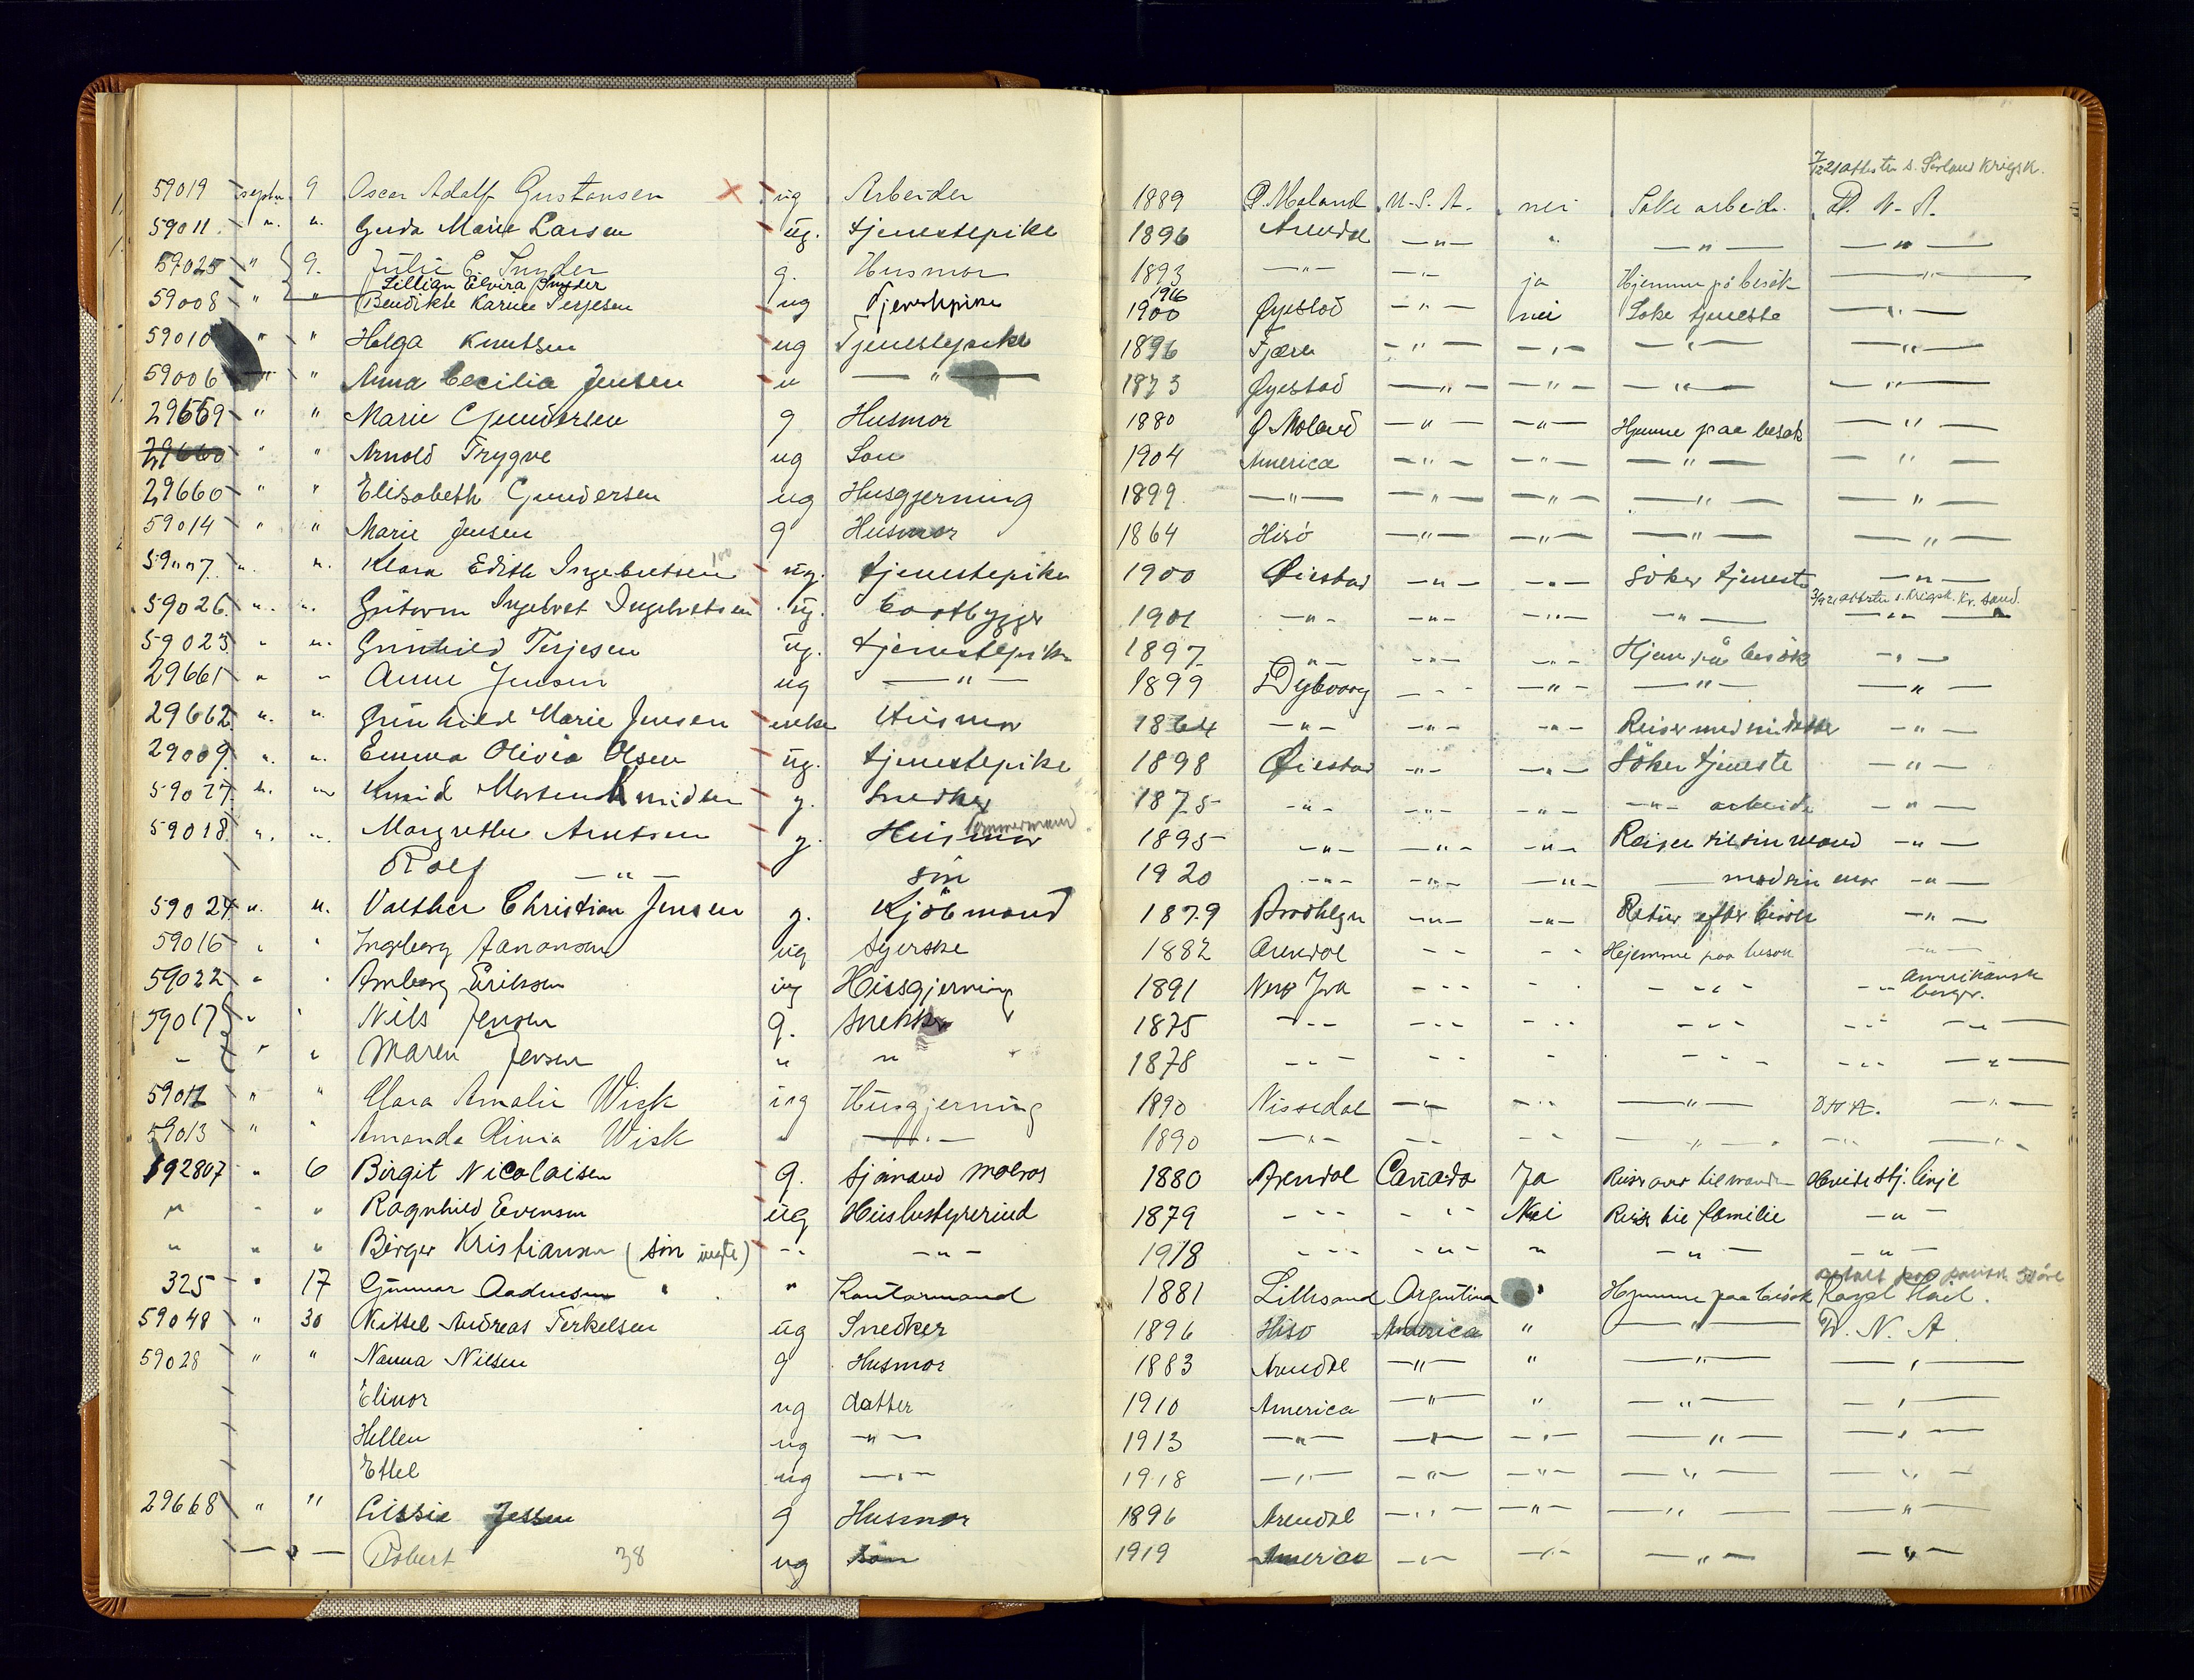 7/12 21 attester s. Sörland Krigsk.
59019 septbr 9 Oscar Adolf Gustavsen x ug Arbeider 1889 Ö. Moland U.S.A. nei Söke arbeide. D. N. A.
59011 " " Gerda Marie Larsen ug. tjenestepike 1896 Arendal —"— " —"— —"—
59025 " 9. Julie E. Snyder g. Husmor 1893 —"— —"— ja Hjemme på besök —"—
Lillian Elvira Snyder 1916
59008 " " Bendikte Karine Terjesen ug Tjenestepike 1900 Öyestad —"— nei Söke tjeneste —"—
59010 " " Helga Knutsen ug Tjenestepike 1896 Fjære —"— —"— —"— —"—
59006 " " Anna Cecilia Jensen u —"— 1873 Öyestad —"— —"— —"— —"—
29659 " " Marie Gundersen g Husmor 1880 Ö Moland —"— —"— Hjemme paa besök —"—
29660 " " Arnold Trygve ug Sön 1904 America —"— —"— —"— —"—
29660 " " Elisabeth Gundersen ug Husgjerning 1899 —"— —"— —"— —"— —"—
59014 " " Marie Jensen g Husmor 1864 Hisö —"— —"— —"— —"—
59007 " " Klara Edith Ingebretsen ug. tjenestepike 1900 Öiestad —"— —"— Söker tjeneste —"—
3/9 21 attester s. Krigsk. Kr. sand.
59026 " " Guttorm Ingebret Ingebretsen ug. baatbygger 1901 —"— —"— —"— —"— —"—
59023 " " Gunhild Terjesen ug. tjenestepike 1897 —"— —"— —"— Hjem på besök —"—
29661 " " Anne Jensen ug —"— 1899 Dybvaag —"— —"— —"— —"—
29662 " " Gunhild Marie Jensen enke Husmor 1864 —"— —"— —"— Reiser med sin datter —"—
29009 " " Emma Olivia Olsen ug. tjenestepike 1898 Öiestad —"— —"— Söker tjeneste —"—
59027 " " Knud Morten Knudsen g. Snedker 1875 —"— —"— —"— —"— arbeide —"—
Tømmermand
59018 " " Margrethe Arntsen g. Husmor 1895 —"— —"— —"— Reiser til sin mand —"—
Rolf —"— sön 1920 —"— —"— —"— — med sin mor —"—
59024 " " Valther Christian Jensen g. Kjöbmand 1879 Brooklyn —"— —"— Retur efter besök —"—
59016 " " Ingeborg Aanonsen ug syerske 1882 Arendal —"— —"— Hejemme paa besök —"—
59022 " " Amborg Eriksen ug Hüsgjerning 1891 New Jea —"— —"— —"— —"— Amerikansk borger.
59017 " " Nils Jensen g. Snekker 1875 —"— —"— —"— —"— —"— —"—
" " " Maren Jensen " " 1878 —"— —"— " —"— —"— —"—
59012 " " Clara Amalie Wisk ug Husgjerning 1890 Nissedal —"— —"— —"— DNA. —"—
59013 " " Amanda Olivia Wisk " —"— 1890 —"— —"— —"— —"— —"— —"—
192807 " 6 Birgit Nicolaisen g. sjömand 1880 Arendal Canada Ja Reiser over til manden Hvide Stj. linje
" " " Ragnhild Evensen ug Husbestyrerind 1879 —"— —"— Nei Reise til familie —"—
" " " Birger Kristiansen (sön ) —"— —"— 1918 —"— —"— " —"— —"—
325 " 17 Gunnar Aadnesen " Kontormand 1881 Lillesand Argentina " Hjemme paa besök Royal Mail.
59048 " 30 Nissel Andreas Terkelsen ug Snedker 1896 Hisö America " —"— D. N. A.
59028 " " Nanna Nilsen g Husmor 1883 Arendal —"— " —"— —"—
Elinor ug datter 1910 America —"— " —"— —"—
Hellen ug —"— 1913 —"— —"— —"— —"— —"—
Ethel ug —"— 1918 —"— —"— —"— —"— —"—
29668 " " Lissie Jessen g Husmor 1896 Arendal —"— —"— —"— —"—
—"— Robert 38 ug sön 1919 America —"— —"— —"— —"—